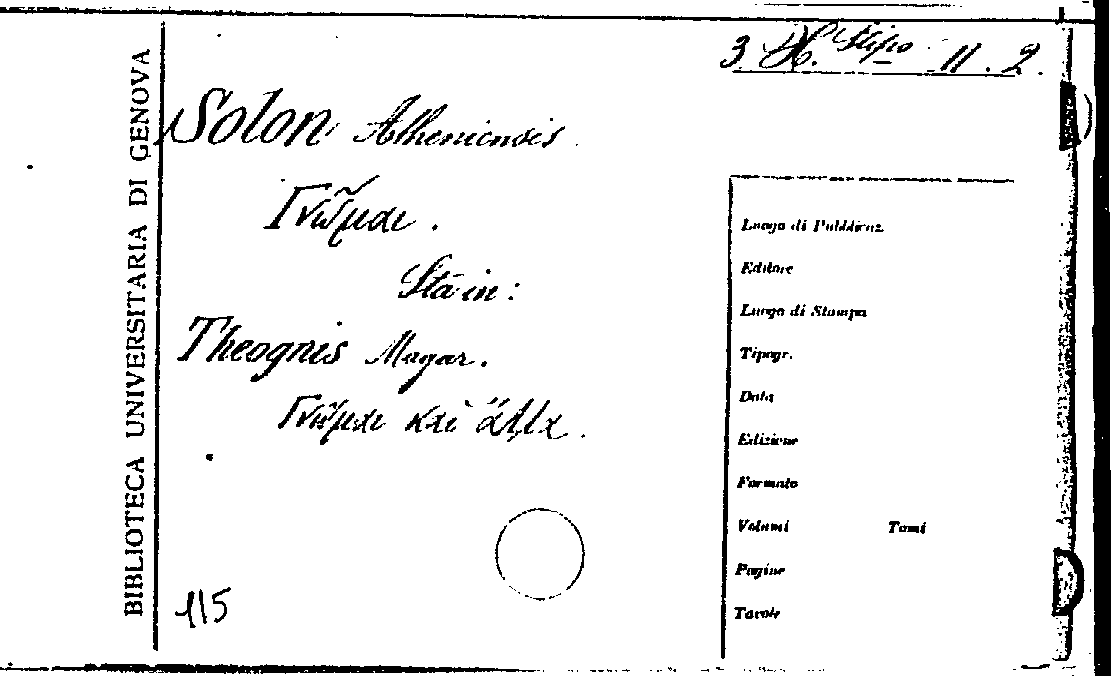 3 H. Stipo 11. 2.
BIBLIOTECA UNIVERSITARIA DI GENOVA
Solon Atheniensis.
Γνῶμαι.
Sta in:
Theognis Megar.
Γνῶμαι καὶ ἄλλα.
115
Luogo di Pubblicaz.
Editore
Luogo di Stampa
Tipogr.
Data
Edizione
Formato
Volumi Tomi
Pagine
Tavole